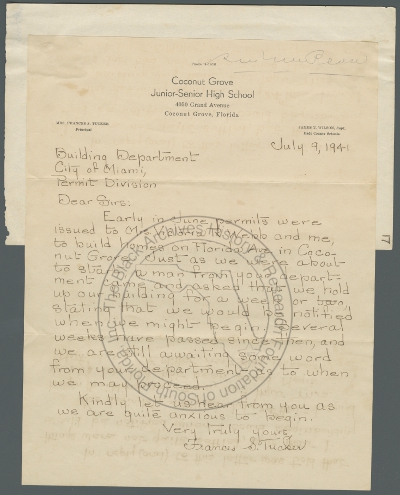 Coconut Grove
Junior-Senior High School
4350 Grand Avenue
Coconut Grove, Florida
MRS. FRANCES S. TUCKER
Principal
JAMES T. WILSON, Supt.
Dade County Schools
July 9, 1941
Building Department
City of Miami,
Permit Division
Dear Sirs:
Early in June permits were
issued to Mr. and me,
to build homes on Florida Ave in Coco-
nut Grove. Just as we were about
to start a man from your depart-
ment came and asked that we hold
up our building for a week or two,
stating that we would be notified
when we might begin. Several
weeks have passed since then, and
we are still awaiting some word
from your department as to when
we may proceed.
Kindly let us hear from you as
we are quite anxious to begin.
Very truly yours,
Francis S. Tucker
The Black Archives History & Research Foundation of South Florida